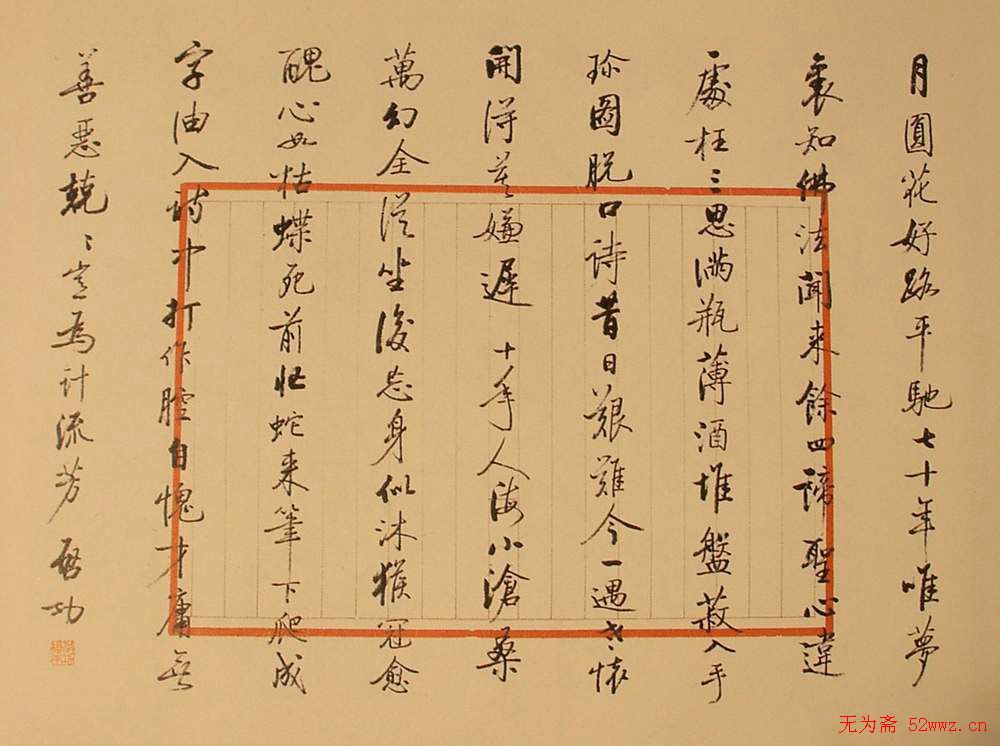 月圓花好路平馳七十年唯夢
裏知佛法聞来餘四諦聖心違
處枉三思滿瓶薄酒堆盤菽入手
珍圖脱口詩昔日艱難今一遇老懷
開得莫嫌遲 十年人海小滄桑
萬幻全從坐後忘身似沐猴冠愈
醜心如枯蝶死前忙蛇来筆下爬成
字油入詩中打作腔自愧才庸無
善惡兢〻豈為計流芳 啓功
无为斋 52wwz.cn